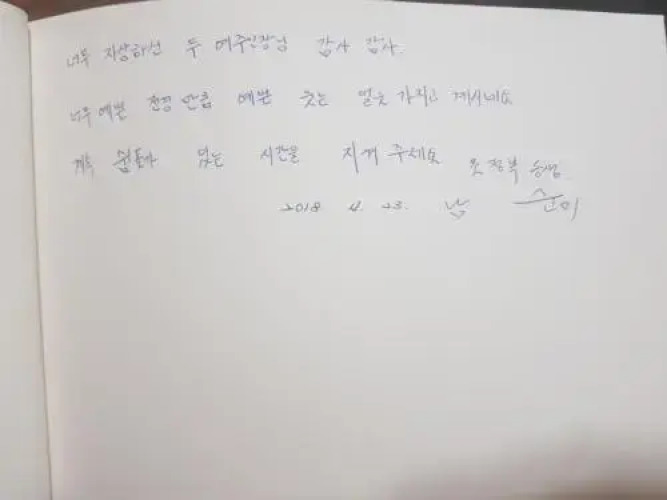 너무 자상하신 두 여주인장님 감사 감사.
너무 예쁜 전경 만큼 예쁜 웃는 얼굴 가지고 계시네요
계속 쉼터가 있는 시간을 지켜 주세요
2018 4. 23. 남 순이